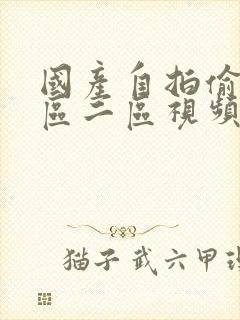 國產自拍偷
區二區視頻
猫子武六甲